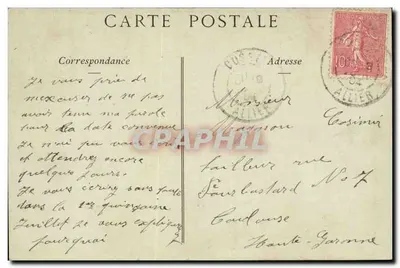 CARTE POSTALE
Correspondance
Adresse
Je vous prie de
m'excuser de ne pas
avoir tenu ma parole
pour la date convenue
Je n'ai pu vous
et attendrez encore
quelques jours.
Je vous écrirez sans faute
dans la 1re quinzaine
Juillet je vous expliquer
pourquoi
Monsieur
Casimir
tailleur rue
No 7
Toulouse
Haute-Garonne
CPHPHIL
10
ALLIER
ALLIER